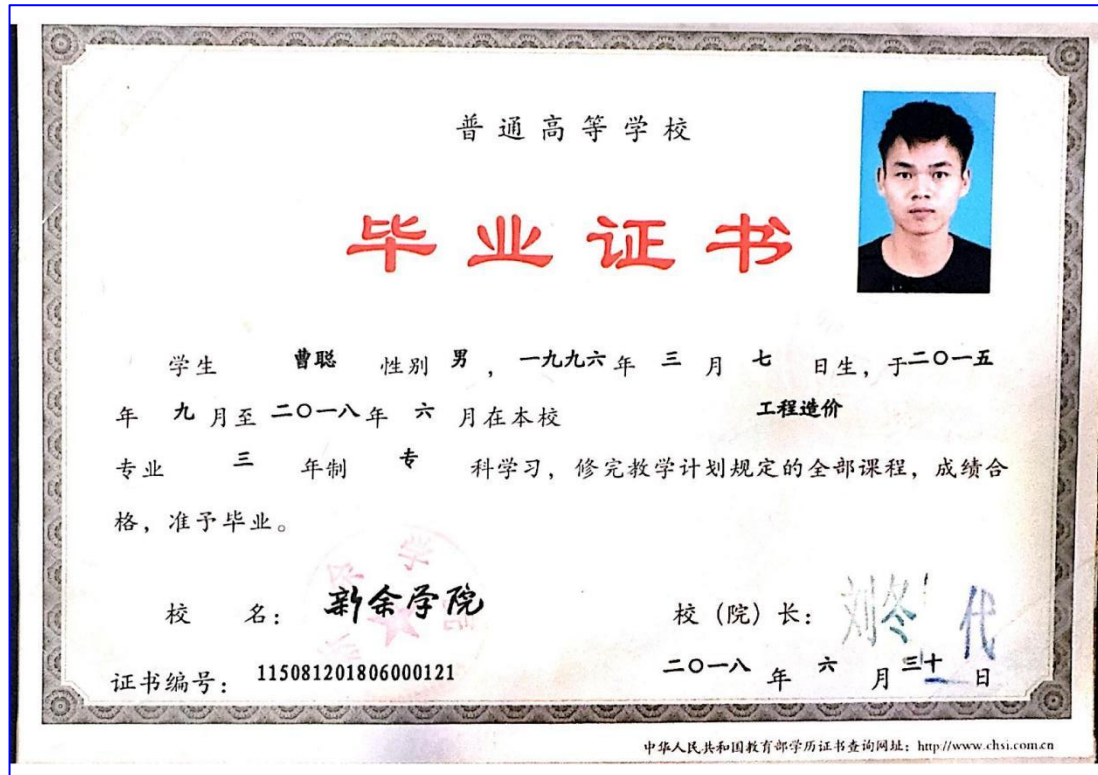 普通高等学校
毕业证书
学生 曹聪 性别 男 ，一九九六 年 三 月 七 日生，于二〇一五
年 九 月至 二〇一八 年 六 月在本校 工程造价
专业 三 年制 专 科学习，修完教学计划规定的全部课程，成绩合
格，准予毕业。
校 名： 新余学院
校（院）长： 刘冬 代
证书编号： 115081201806000121
二〇一八 年 六 月 三十 日
中华人民共和国教育部学历证书查询网址：http://www.chsi.com.cn